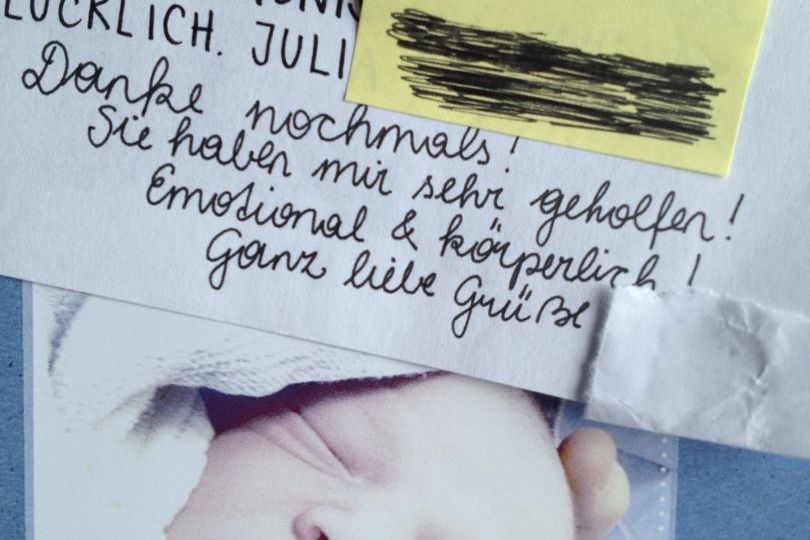 LÜCKLICH. JULI
Danke nochmals!
Sie haben mir sehr geholfen!
Emotional & körperlich!
Ganz liebe Grüße